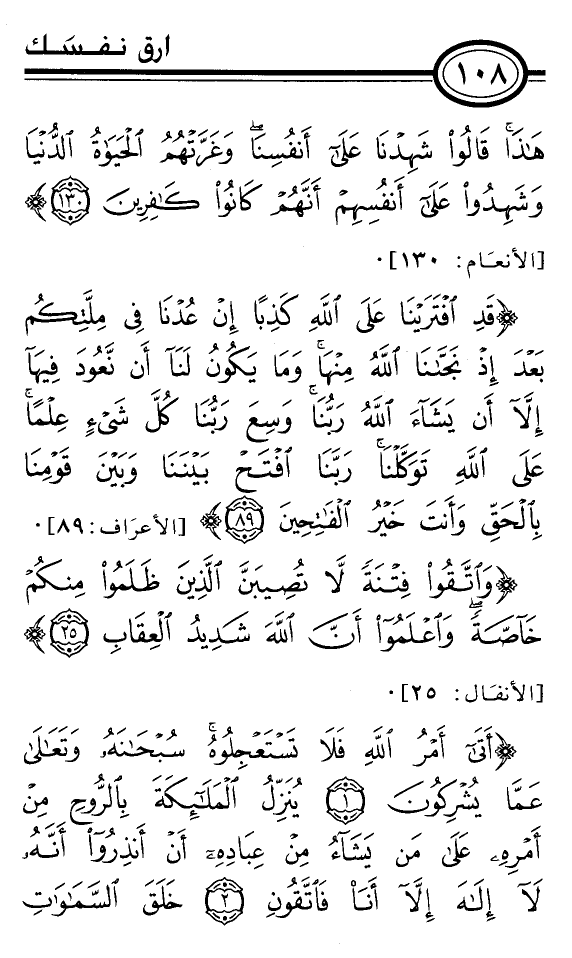 ارق نفسك
١٠٨
هَٰذَاۚ قَالُواْ شَهِدْنَا عَلَىٰٓ أَنفُسِنَاۖ وَغَرَّتْهُمُ ٱلْحَيَوٰةُ ٱلدُّنْيَا
وَشَهِدُواْ عَلَىٰٓ أَنفُسِهِمْ أَنَّهُمْ كَانُواْ كَٰفِرِينَ ١٣٠﴾
[الأنعام: ١٣٠].
﴿قَدِ ٱفْتَرَيْنَا عَلَى ٱللَّهِ كَذِبًا إِنْ عُدْنَا فِى مِلَّتِكُم
بَعْدَ إِذْ نَجَّىٰنَا ٱللَّهُ مِنْهَاۚ وَمَا يَكُونُ لَنَآ أَن نَّعُودَ فِيهَآ
إِلَّآ أَن يَشَآءَ ٱللَّهُ رَبُّنَاۚ وَسِعَ رَبُّنَا كُلَّ شَىْءٍ عِلْمًاۚ
عَلَى ٱللَّهِ تَوَكَّلْنَاۚ رَبَّنَا ٱفْتَحْ بَيْنَنَا وَبَيْنَ قَوْمِنَا
بِٱلْحَقِّ وَأَنتَ خَيْرُ ٱلْفَٰتِحِينَ ٨٩﴾ [الأعراف: ٨٩].
﴿وَٱتَّقُواْ فِتْنَةً لَّا تُصِيبَنَّ ٱلَّذِينَ ظَلَمُواْ مِنكُمْ
خَآصَّةًۖ وَٱعْلَمُوٓاْ أَنَّ ٱللَّهَ شَدِيدُ ٱلْعِقَابِ ٢٥﴾
[الأنفال: ٢٥].
﴿أَتَىٰٓ أَمْرُ ٱللَّهِ فَلَا تَسْتَعْجِلُوهُۚ سُبْحَٰنَهُۥ وَتَعَٰلَىٰ
عَمَّا يُشْرِكُونَ ١ يُنَزِّلُ ٱلْمَلَٰٓئِكَةَ بِٱلرُّوحِ مِنْ
أَمْرِهِۦ عَلَىٰ مَن يَشَآءُ مِنْ عِبَادِهِۦٓ أَنْ أَنذِرُوٓاْ أَنَّهُۥ
لَآ إِلَٰهَ إِلَّآ أَنَا۠ فَٱتَّقُونِ ٢ خَلَقَ ٱلسَّمَٰوَٰتِ